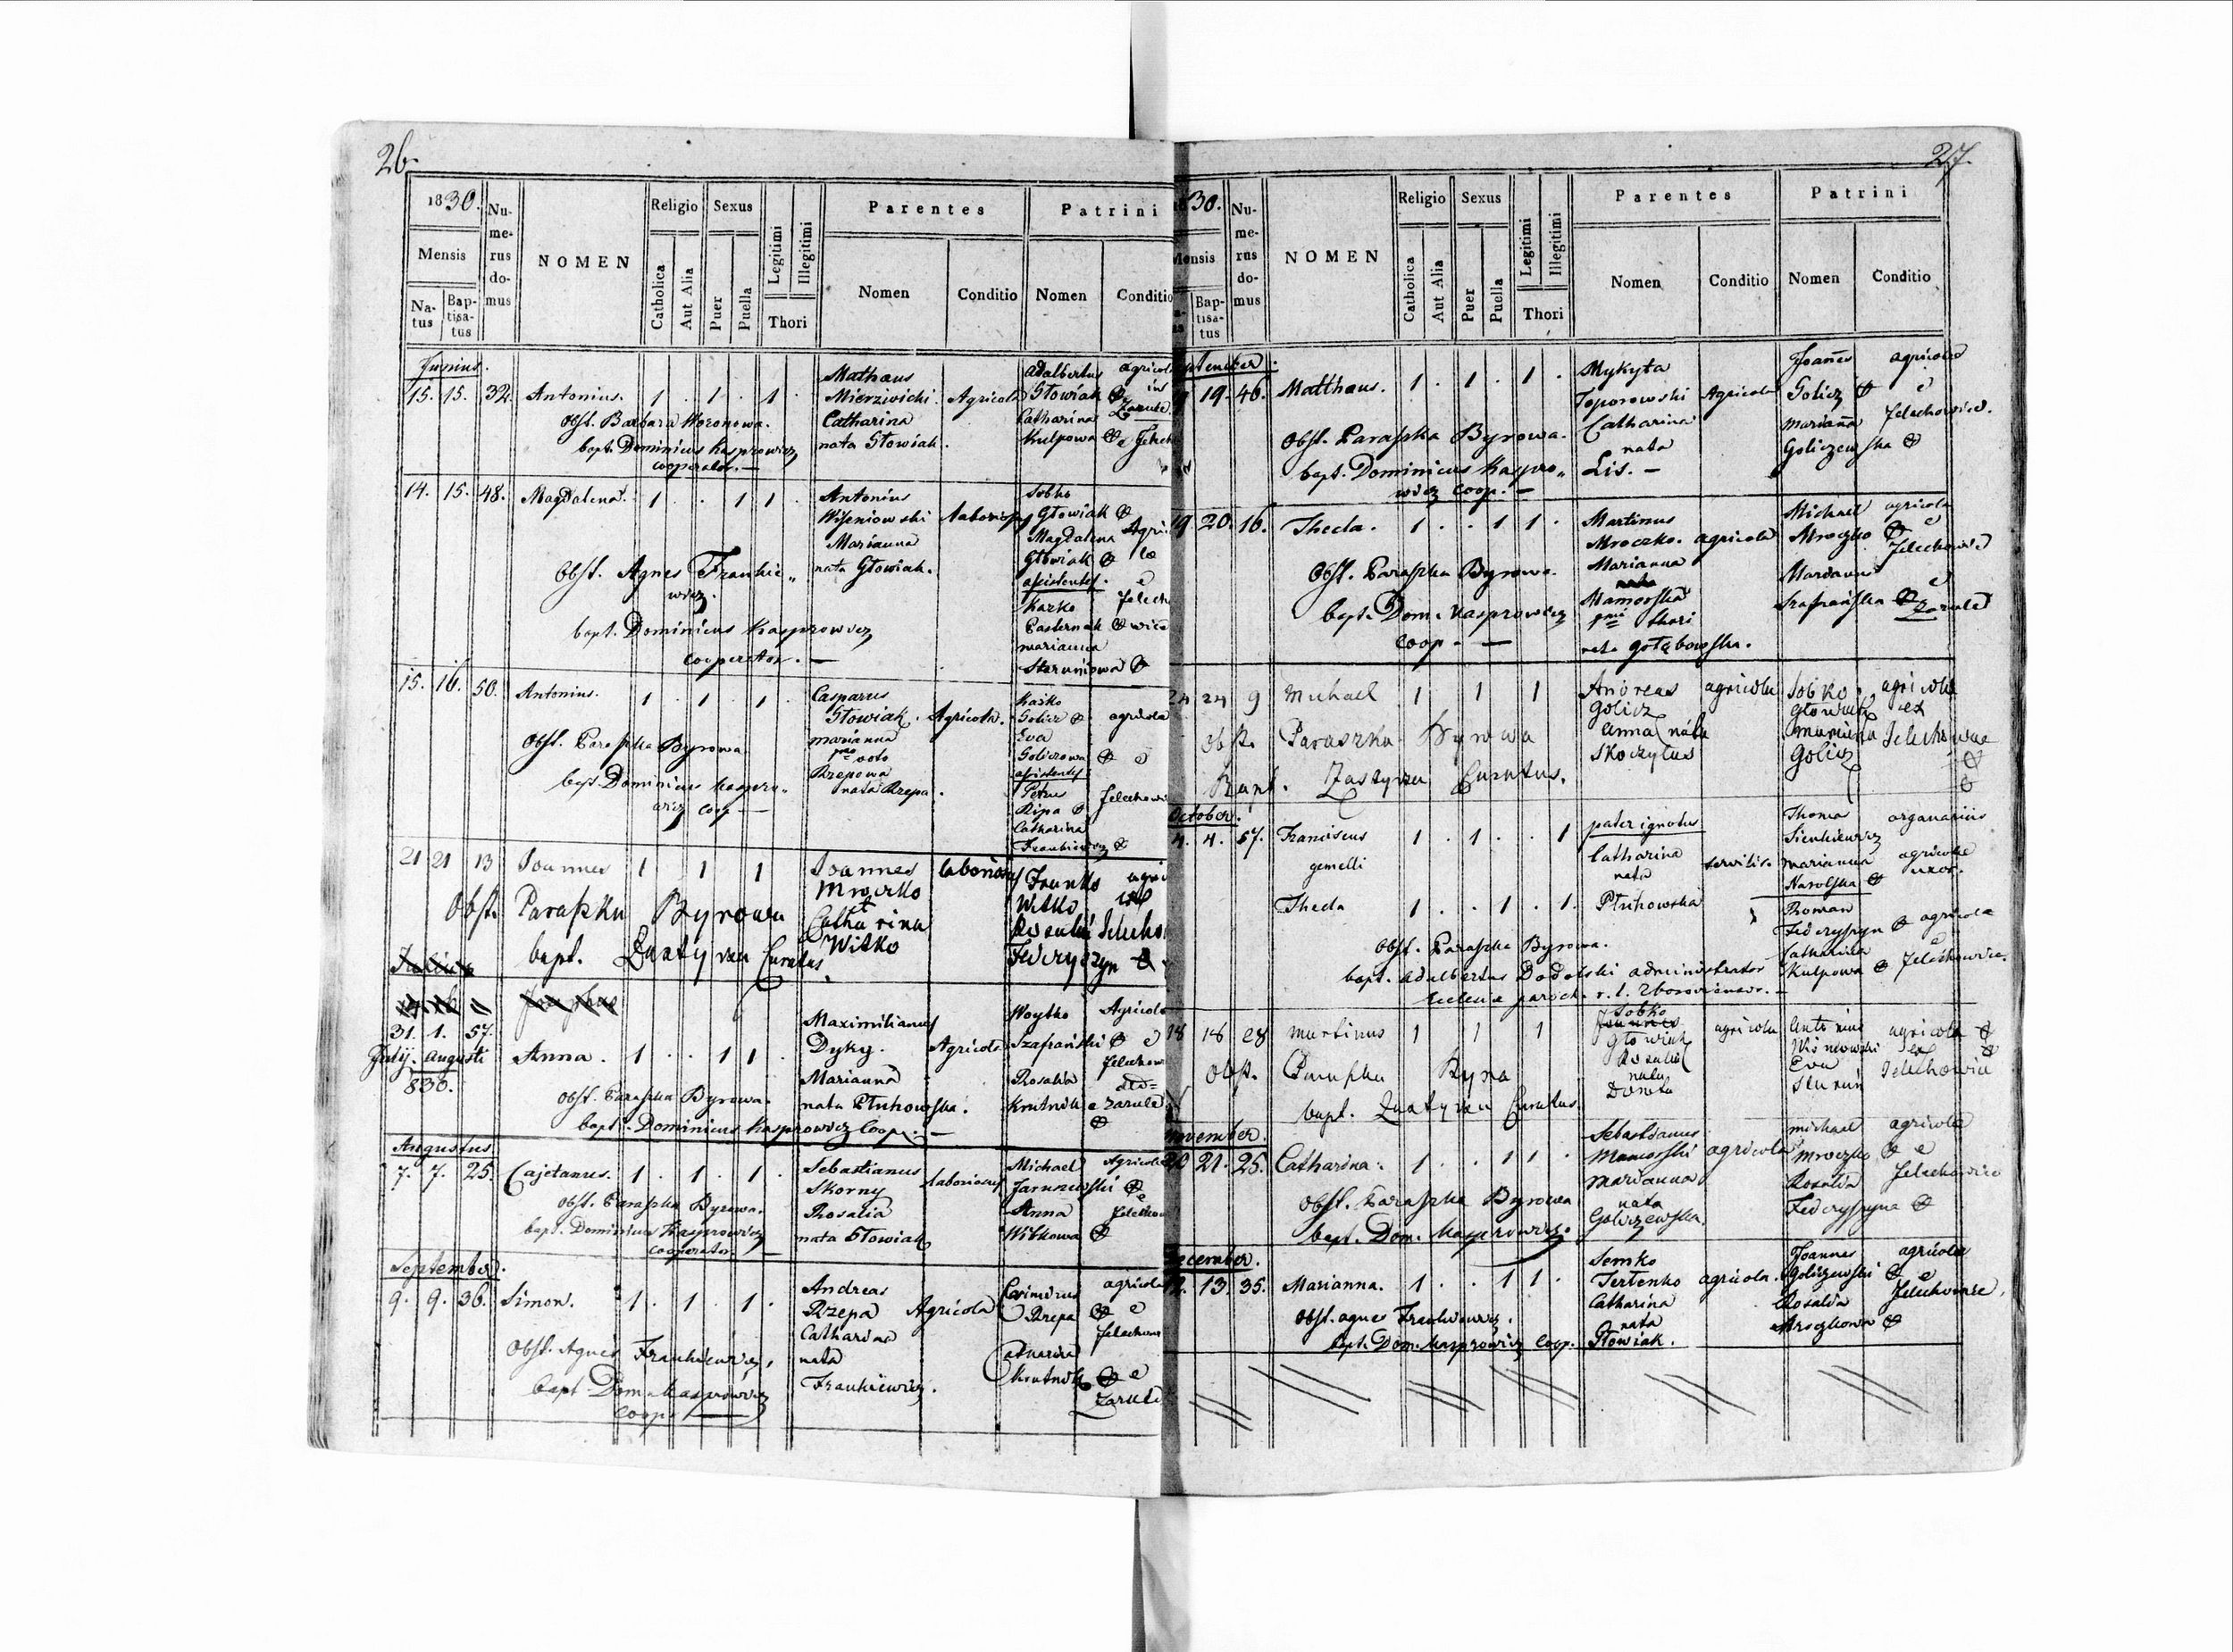 26.
1830.
Numerus domus
NOMEN
Religio
Sexus
Legitimi
Illegitimi
Parentes
Patrini
Mensis
Catholica
Aut Alia
Puer
Puella
Thori
Nomen
Conditio
Nomen
Conditio
Natus
Baptisatus
Junius.
15. 15. 32. Antonius. 1 . 1 . 1 .
Mathaus
Mierzwicki Agricola
Catharina
nata Głowiak.
Adalbertus agricola
Głowiak
Catharina
Kulpowa
Obst. Barbara Woronowa.
bapt. Dominicus Kasprowicz
cooperator. —
14. 15. 48. Magdalena. 1 . . 1 1 .
Antonius
Wiszeniowski
Marianna
nata Głowiak.
Sobko
Głowiak
Magdalena
Głowiak
assistentes.
Kazko
Pasternak
marianna
Obst. Agnes Frankie„
wicz.
bapt. Dominicus Kasprowicz
cooperator. —
15. 16. 50. Antonius. 1 . 1 . 1 .
Casparus
Głowiak. Agricola.
marianna
voto
Rzepowa
nata Rzepa.
Kasko
Golicz agricola
Eva
Goliczowa
assistentes
Petrus
Ripa
Catharina
Frankiewicz
Obst. Paraszka Byrowa
bapt. Dominicus Kaspro„
wicz coop —
21 21 13 Joannes 1 1 1
Joannes
Mroczko
Catharina
Witko
Franko
Witko
Rosalia
Federyszyn
Obst. Paraszka Byrowa
bapt. Curatus
31. 1. 57.
July. Augusti
830.
Anna. 1 . . 1 1 .
Maximilianus
Dyky. Agricola
Marianna
nata Ptuhowska.
Woytko Agricola
Szafrański
Rosalia
Krutnik e Zarude
Obst. Paraszka Byrowa.
bapt. Dominicus Kasprowicz Coop. —
Augustus
7. 7. 25. Cajetanus. 1 . 1 . 1 .
Sebastianus
Skorny
Rosalia
nata Głowiak
Michael Agricola
Jaruzewski
Anna
Witkowa
Obst. Paraszka Byrowa.
bapt. Dominicus Kasprowicz
cooperator. —
September.
9. 9. 36. Simon. 1 . 1 . 1 .
Andreas
Rzepa Agricola
Catharina
nata
Frankiewicz.
Casimirus agricola
Rzepa
Catharina
Krutnik
Obst. Agnes Frankiewicz,
bapt Dom. Kasprowicz
coop. —
27.
30.
Numerus domus
NOMEN
Religio
Sexus
Legitimi
Illegitimi
Parentes
Patrini
Mensis
Catholica
Aut Alia
Puer
Puella
Thori
Nomen
Conditio
Nomen
Conditio
Baptisatus
19. 46. Matthaus. 1 . 1 . 1 .
Mykyta
Toporowski Agricola
Catharina
nata
Lis. —
Joañes agricola
Golicz
Mariaña
Goliczewska
Obst. Paraszka Byrowa.
bapt. Dominicus Kaspro„
wicz coop. —
19 20. 16. Theda. 1 . . 1 1 .
Martinus
Mroczko. agricola
Marianna
Mamorska
thori
nata Gołąbowska.
Michael agricola
Mroczko
Marianna
Szafrańska
Obst. Paraszka Byrowa.
bapt. Dom. Kasprowicz
coop. —
24 24 9 Michael 1 1 1
Andreas agricola
Golicz
Anna nata
Skoczylas
Sobko agricola
Głowiak ex
Marianna
Golicz
Obst. Paraszka Byrowa
Bapt. Curatus.
October.
4. 4. 57. Franciscus 1 . 1 . . 1
gemelli
Theda 1 . . 1 . 1.
pater ignotus
Catharina
nata
Ptuhowska
Thomas organarius
Sienkiewicz
marianna agricolae
uxor.
Roman
Federyszyn agricola
Catharina
Kulpowa
Obst. Paraszka Byrowa.
bapt. Adalbertus Bodolski administrator
18 18 28 Martinus 1 1 1
Sobko
Głowiak agricola
Rosalia
nata
Antonius agricola
Eva
Obst. Paraszka Byra
bapt. Curatus.
November.
20 21. 25. Catharina. 1 . . 1 1 .
Sebastianus
Mamorski agricola
Marianna
nata
Goliczewska.
Michael agricola
Mroczko
Rosalia
Federyszyna
Obst. Paraszka Byrowa
bapt. Dom. Kasprowicz.
December.
12. 13. 35. Marianna. 1 . . 1 1 .
Semko
Tertenko agricola.
Catharina
nata
Głowiak.
Joannes agricola
Goliczewski
Rosalia
Mroczkowa
Obst. Agnes Frankiewicz.
bapt. Dom. Kasprowicz Coop.